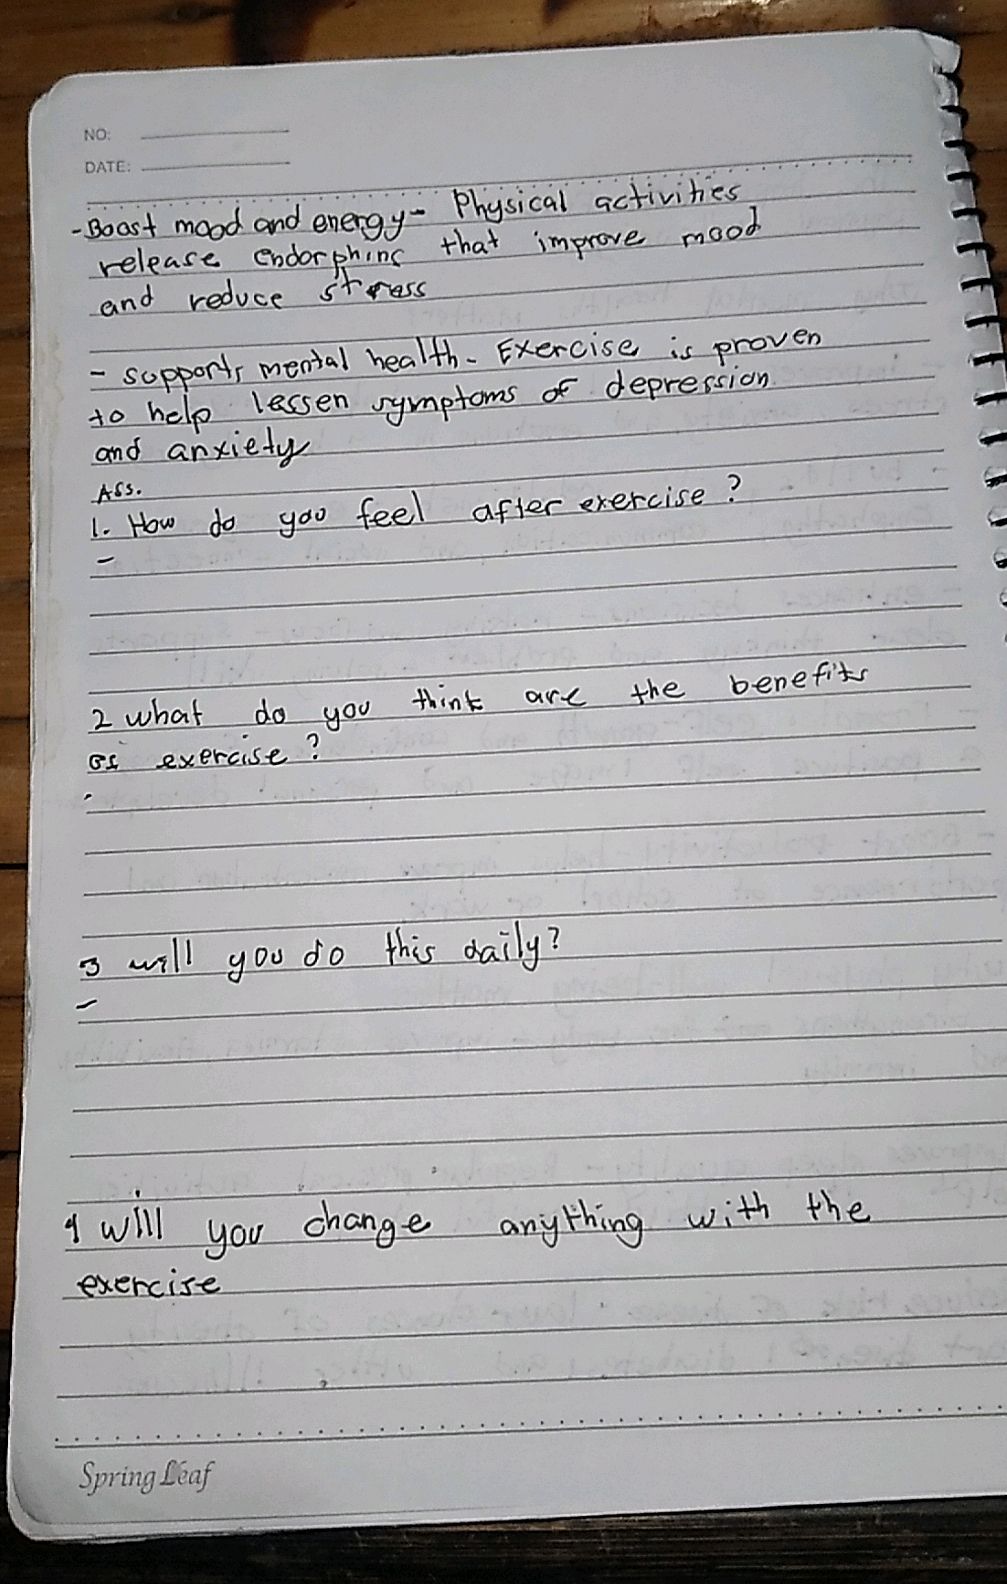 NO:
DATE:
- Boost mood and energy - Physical activities
release endorphins that improve mood
and reduce stress
- supports mental health - Exercise is proven
to help lessen symptoms of depression
and anxiety
Ass.
1. How do you feel after exercise?
-
2 what do you think are the benefits
of exercise?
3 will you do this daily?
-
4 will you change anything with the
exercise
Spring Leaf